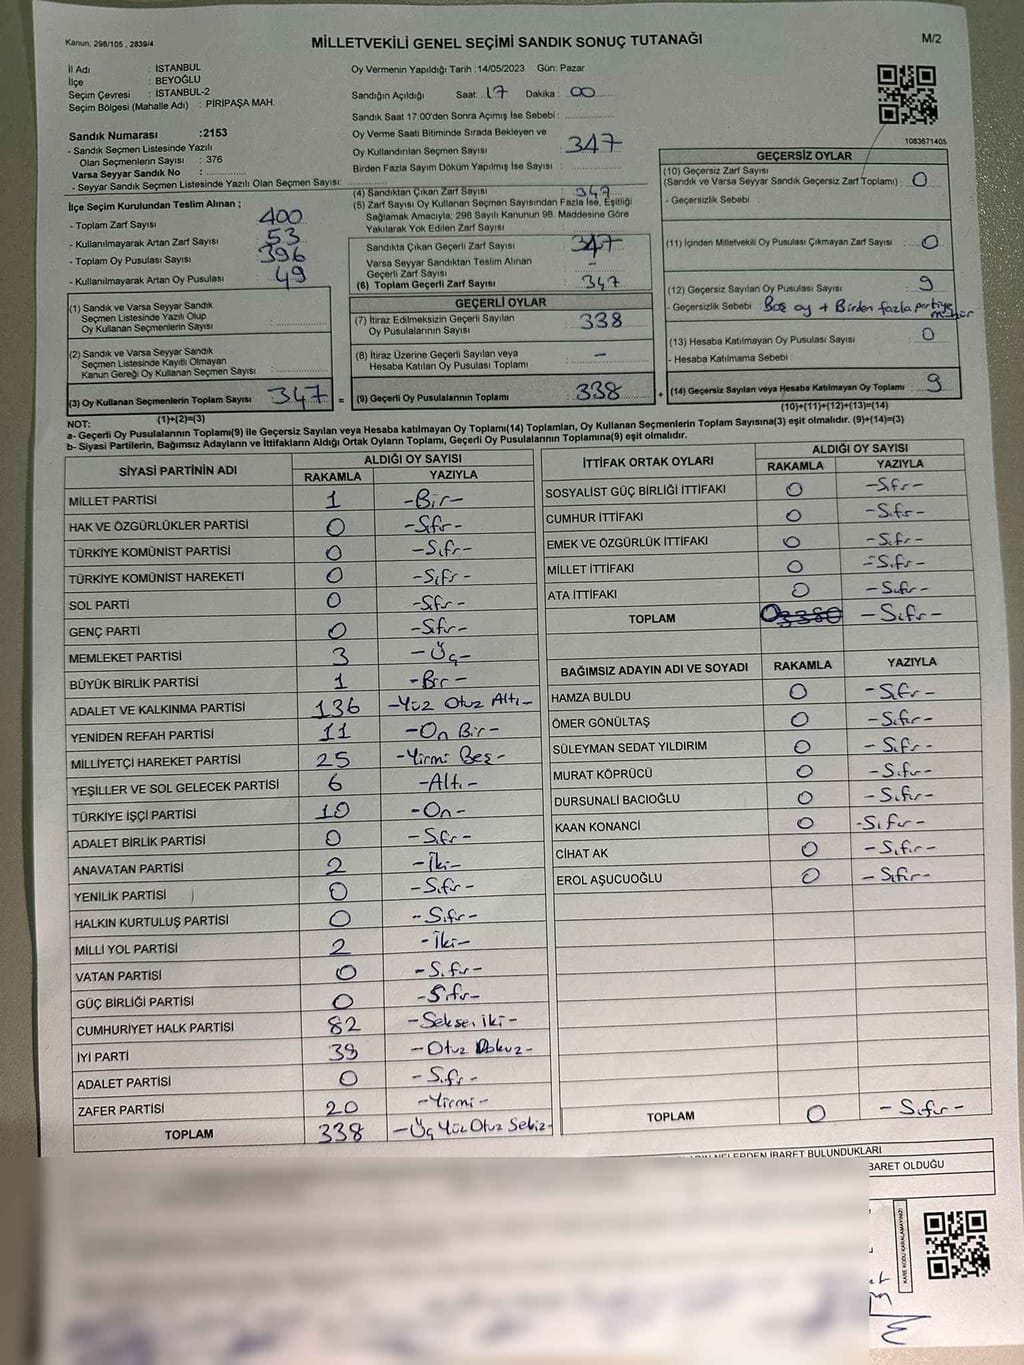 Kanun: 298/105 , 2839/4
MİLLETVEKİLİ GENEL SEÇİMİ SANDIK SONUÇ TUTANAĞI
M/2
İl Adı : İSTANBUL
İlçe : BEYOĞLU
Seçim Çevresi : İSTANBUL-2
Seçim Bölgesi (Mahalle Adı) : PİRİPAŞA MAH.
Sandık Numarası :2153
- Sandık Seçmen Listesinde Yazılı
Olan Seçmenlerin Sayısı : 376
Varsa Seyyar Sandık No :
- Seyyar Sandık Seçmen Listesinde Yazılı Olan Seçmen Sayısı:
Oy Vermenin Yapıldığı Tarih :14/05/2023 Gün: Pazar
Sandığın Açıldığı Saat: 17 Dakika : 00
Sandık Saat 17:00'den Sonra Açımış İse Sebebi :
Oy Verme Saati Bitiminde Sırada Bekleyen ve
Oy Kullandırılan Seçmen Sayısı : 347
Birden Fazla Sayım Döküm Yapılmış İse Sayısı :
1083671405
İlçe Seçim Kurulundan Teslim Alınan ;
- Toplam Zarf Sayısı : 400
- Kullanılmayarak Artan Zarf Sayısı : 53
- Toplam Oy Pusulası Sayısı : 396
- Kullanılmayarak Artan Oy Pusulası : 49
(1) Sandık ve Varsa Seyyar Sandık
Seçmen Listesinde Yazılı Olup
Oy Kullanan Seçmenlerin Sayısı :
(2) Sandık ve Varsa Seyyar Sandık
Seçmen Listesinde Kayıtlı Olmayan
Kanun Gereği Oy Kullanan Seçmen Sayısı :
(3) Oy Kullanan Seçmenlerin Toplam Sayısı : 347 =
(1)+(2)=(3)
(4) Sandıktan Çıkan Zarf Sayısı : 347
(5) Zarf Sayısı Oy Kullanan Seçmen Sayısından Fazla İse, Eşitliği
Sağlamak Amacıyla; 298 Sayılı Kanunun 98. Maddesine Göre
Yakılarak Yok Edilen Zarf Sayısı :
Sandıkta Çıkan Geçerli Zarf Sayısı : 347
Varsa Seyyar Sandıktan Teslim Alınan
Geçerli Zarf Sayısı : -
(6) Toplam Geçerli Zarf Sayısı : 347
GEÇERLİ OYLAR
(7) İtiraz Edilmeksizin Geçerli Sayılan
Oy Pusulalarının Sayısı : 338
(8) İtiraz Üzerine Geçerli Sayılan veya
Hesaba Katılan Oy Pusulası Toplamı : -
(9) Geçerli Oy Pusulalarının Toplamı : 338 +
GEÇERSİZ OYLAR
(10) Geçersiz Zarf Sayısı
(Sandık ve Varsa Seyyar Sandık Geçersiz Zarf Toplamı) : 0
- Geçersizlik Sebebi :
(11) İçinden Milletvekili Oy Pusulası Çıkmayan Zarf Sayısı : 0
(12) Geçersiz Sayılan Oy Pusulası Sayısı : 9
- Geçersizlik Sebebi : Boş oy + Birden fazla partiye mühür
(13) Hesaba Katılmayan Oy Pusulası Sayısı : 0
- Hesaba Katılmama Sebebi :
(14) Geçersiz Sayılan veya Hesaba Katılmayan Oy Toplamı : 9
(10)+(11)+(12)+(13)=(14)
NOT:
a- Geçerli Oy Pusulalarının Toplamı(9) ile Geçersiz Sayılan veya Hesaba katılmayan Oy Toplamı(14) Toplamları, Oy Kullanan Seçmenlerin Toplam Sayısına(3) eşit olmalıdır. (9)+(14)=(3)
b- Siyasi Partilerin, Bağımsız Adayların ve İttifakların Aldığı Ortak Oyların Toplamı, Geçerli Oy Pusulalarının Toplamına(9) eşit olmalıdır.
SİYASİ PARTİNİN ADI ALDIĞI OY SAYISI
RAKAMLA YAZIYLA
MİLLET PARTİSİ 1 -Bir-
HAK VE ÖZGÜRLÜKLER PARTİSİ 0 -Sıfır-
TÜRKİYE KOMÜNİST PARTİSİ 0 -Sıfır-
TÜRKİYE KOMÜNİST HAREKETİ 0 -Sıfır-
SOL PARTİ 0 -Sıfır-
GENÇ PARTİ 0 -Sıfır-
MEMLEKET PARTİSİ 3 -Üç-
BÜYÜK BİRLİK PARTİSİ 1 -Bir-
ADALET VE KALKINMA PARTİSİ 136 -Yüz Otuz Altı-
YENİDEN REFAH PARTİSİ 11 -On Bir-
MİLLİYETÇİ HAREKET PARTİSİ 25 -Yirmi Beş-
YEŞİLLER VE SOL GELECEK PARTİSİ 6 -Altı-
TÜRKİYE İŞÇİ PARTİSİ 10 -On-
ADALET BİRLİK PARTİSİ 0 -Sıfır-
ANAVATAN PARTİSİ 2 -İki-
YENİLİK PARTİSİ 0 -Sıfır-
HALKIN KURTULUŞ PARTİSİ 0 -Sıfır-
MİLLİ YOL PARTİSİ 2 -İki-
VATAN PARTİSİ 0 -Sıfır-
GÜÇ BİRLİĞİ PARTİSİ 0 -Sıfır-
CUMHURİYET HALK PARTİSİ 82 -Seksen iki-
İYİ PARTİ 39 -Otuz Dokuz-
ADALET PARTİSİ 0 -Sıfır-
ZAFER PARTİSİ 20 -Yirmi-
TOPLAM 338 -Üç Yüz Otuz Sekiz-
İTTİFAK ORTAK OYLARI ALDIĞI OY SAYISI
RAKAMLA YAZIYLA
SOSYALİST GÜÇ BİRLİĞİ İTTİFAKI 0 -Sıfır-
CUMHUR İTTİFAKI 0 -Sıfır-
EMEK VE ÖZGÜRLÜK İTTİFAKI 0 -Sıfır-
MİLLET İTTİFAKI 0 -Sıfır-
ATA İTTİFAKI 0 -Sıfır-
TOPLAM 0 -Sıfır-
BAĞIMSIZ ADAYIN ADI VE SOYADI RAKAMLA YAZIYLA
HAMZA BULDU 0 -Sıfır-
ÖMER GÖNÜLTAŞ 0 -Sıfır-
SÜLEYMAN SEDAT YILDIRIM 0 -Sıfır-
MURAT KÖPRÜCÜ 0 -Sıfır-
DURSUNALİ BACIOĞLU 0 -Sıfır-
KAAN KONANCİ 0 -Sıfır-
CİHAT AK 0 -Sıfır-
EROL AŞUCUOĞLU 0 -Sıfır-
TOPLAM 0 -Sıfır-
NELERDEN İBARET BULUNDUKLARI
BARET OLDUĞU
KARE KODU KARALAMAYINIZ!